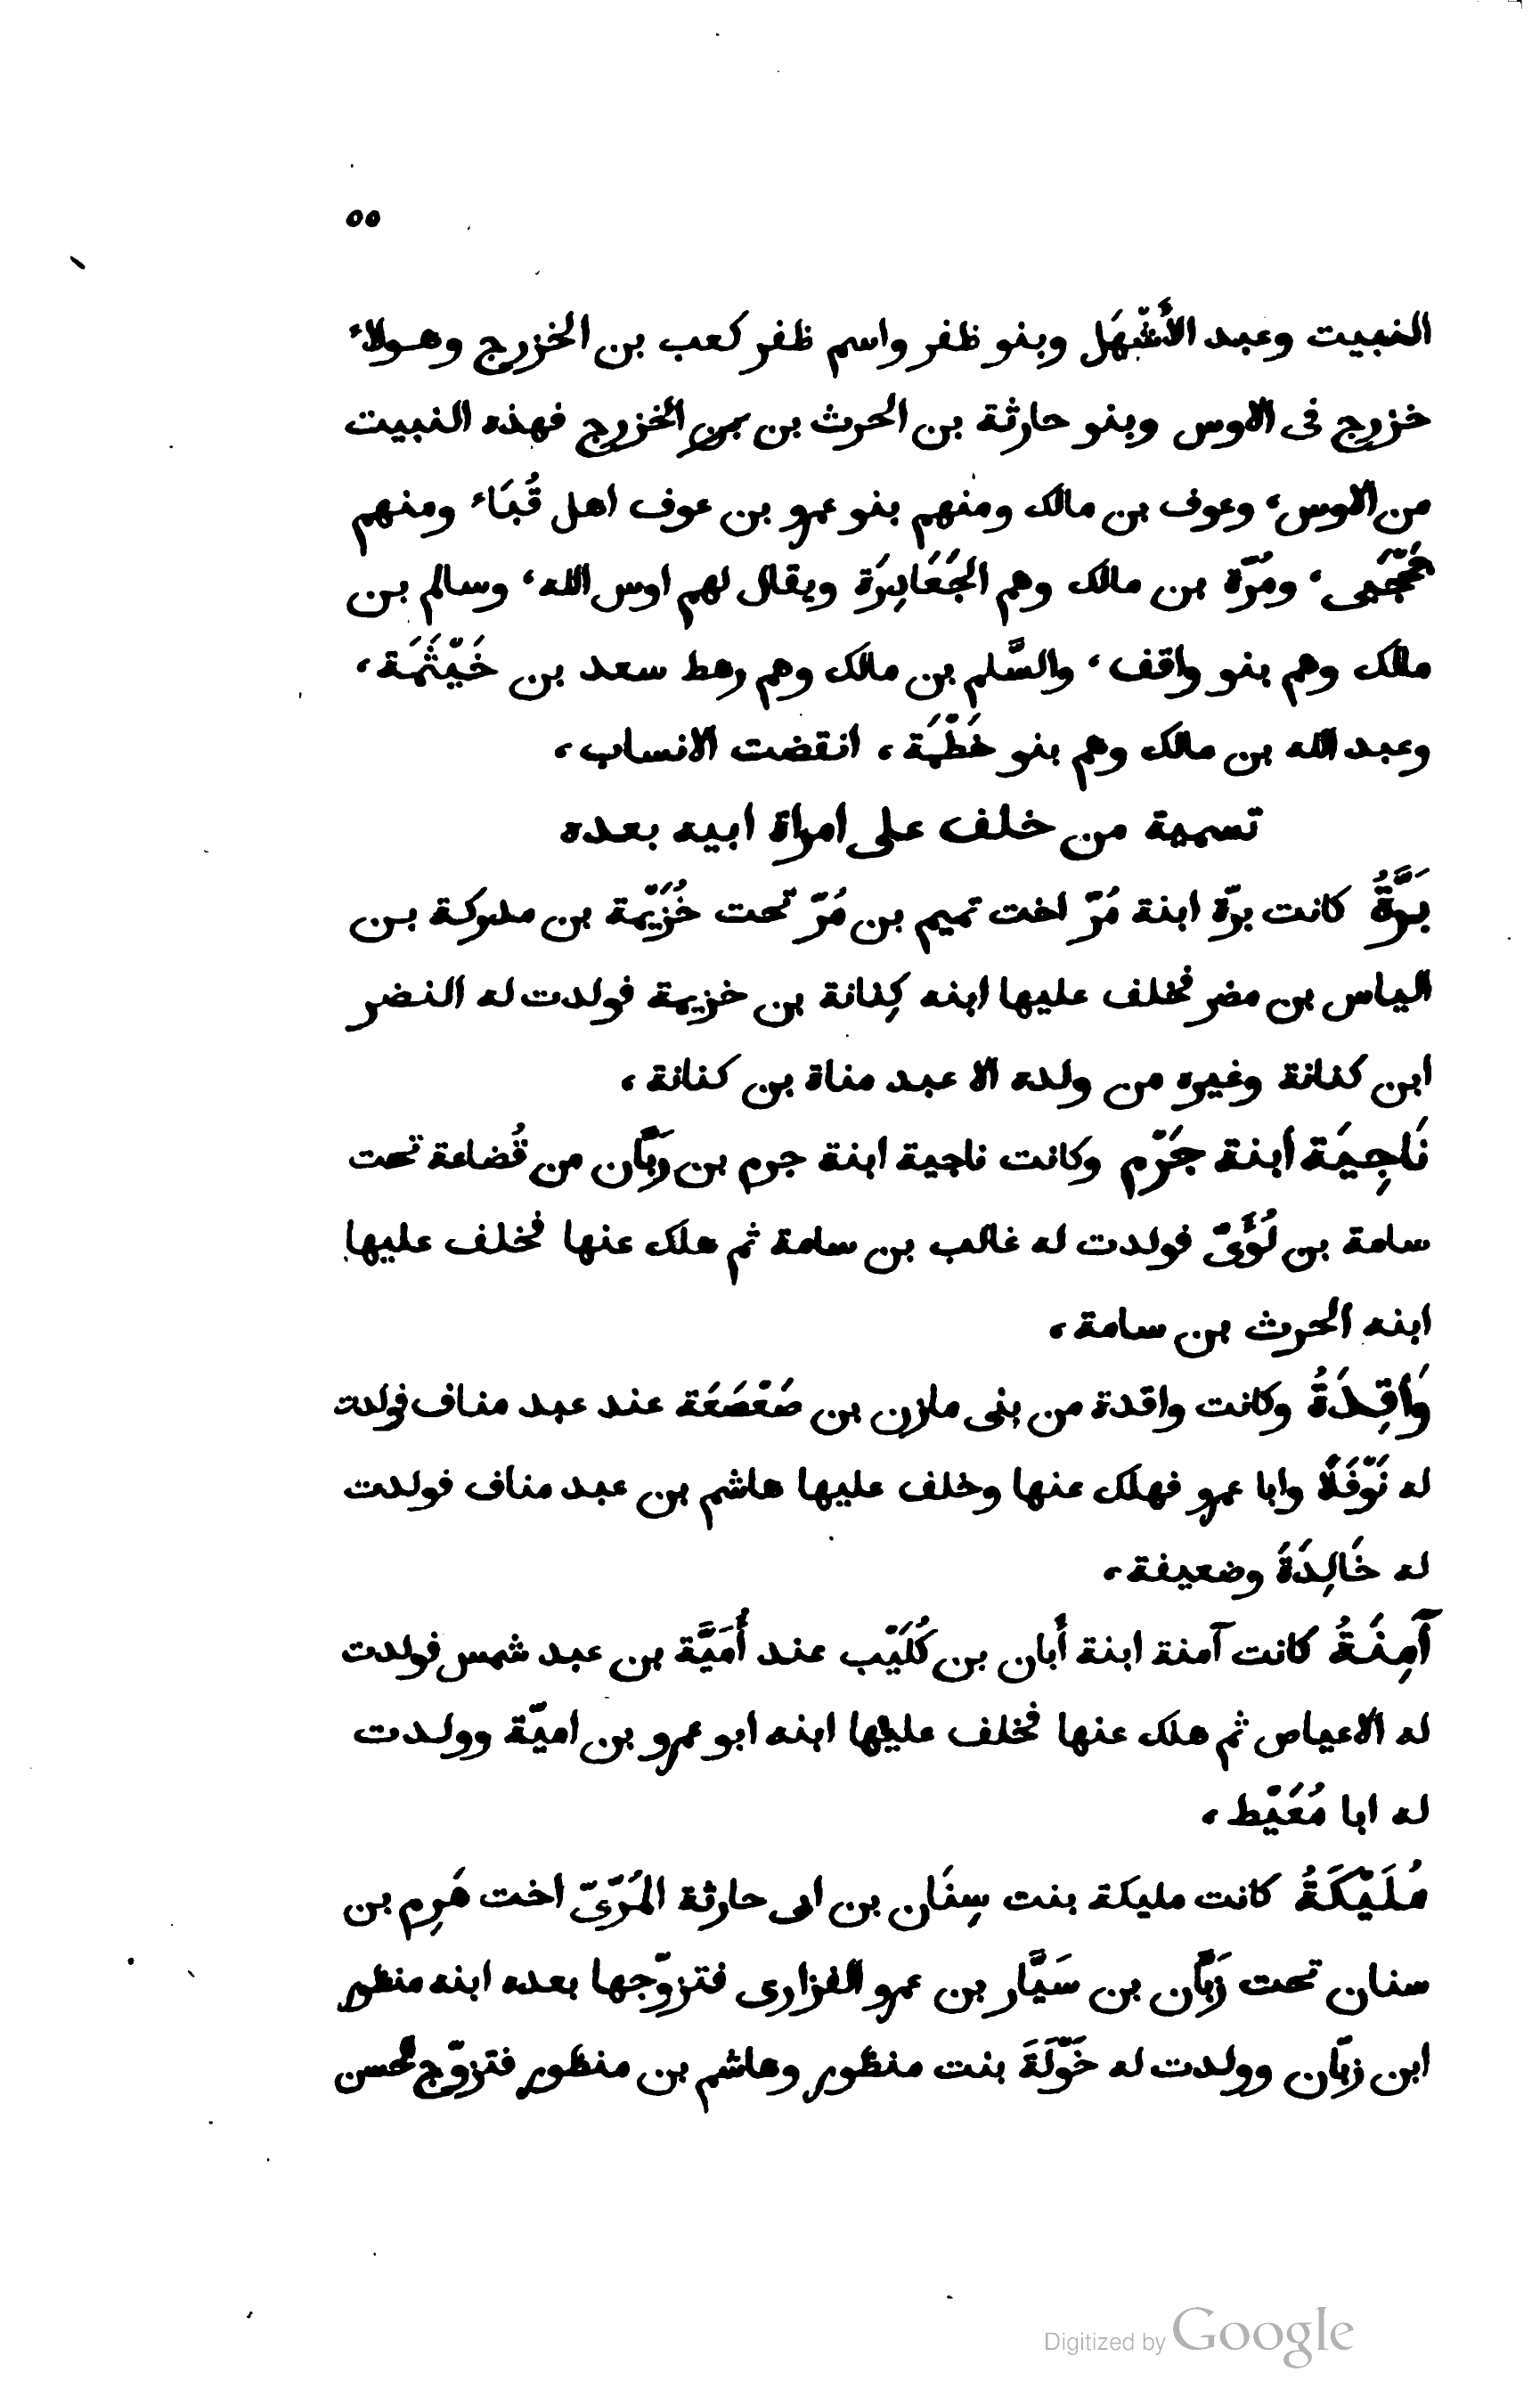 ٥٥
النبيت وعبد الأَشْهَل وبنو ظفر واسم ظفر كعب بن الخزرج وهولاء
خزرج فى الاوس وبنو حارثة بن الحرث بن بن الخزرج فهذه النبيت
من الاوس، وعوف بن مالك ومنهم بنو عمرو بن عوف اهل قُبَاء ومنهم
جَحْجَبى، ومُرّة بن مالك وهم الجَعَادِرَة ويقال لهم اوس الله، وسالم بن
مالك وهم بنو واقف، والسَّلم بن مالك وهم رهط سعد بن خَيْثَمَة،
وعبد الله بن مالك وهم بنو خَطْمَة، انقضت الانساب،
تسمية من خلف على امراة ابيه بعده
بَرَّةُ كانت برّة ابنة مُرّ اخت تميم بن مُرّ تحت خُزَيْمة بن مدركة بن
الياس بن مضر فخلف عليها ابنه كِنانة بن خزيمة فولدت له النضر
ابن كنانة وغيره من ولده الا عبد مناة بن كنانة،
نَاجِيَة ابنة جَرْم وكانت ناجية ابنة جرم بن رَبَّان من قُضاعة تحت
سامة بن لُؤَىّ فولدت له غالب بن سامة ثم هلك عنها فخلف عليها
ابنه الحرث بن سامة،
وَاقِدَةُ وكانت واقدة من بنى مازن بن صَعْصَعَة عند عبد مناف فولدت
له نَوْفَلًا وابا عمرو فهلك عنها وخلف عليها هاشم بن عبد مناف فولدت
له خَالِدَةَ وضعيفة،
آمِنَةُ كانت آمنة ابنة أَبان بن كُلَيْب عند أُمَيَّة بن عبد شمس فولدت
له الاعياص ثم هلك عنها فخلف عليها ابنه ابو عمرو بن اميّة وولدت
له ابا مُعَيْط،
مُلَيْكَةُ كانت مليكة بنت سِنَان بن ابى حارثة المُرّىّ اخت هَرِم بن
سنان تحت زَبَّان بن سَيَّار بن عمرو الفزارى فتزوّجها بعده ابنه منظور
ابن زبّان وولدت له خَوْلَةَ بنت منظور وهاشم بن منظور فتزوّج الحسن
Digitized by Google